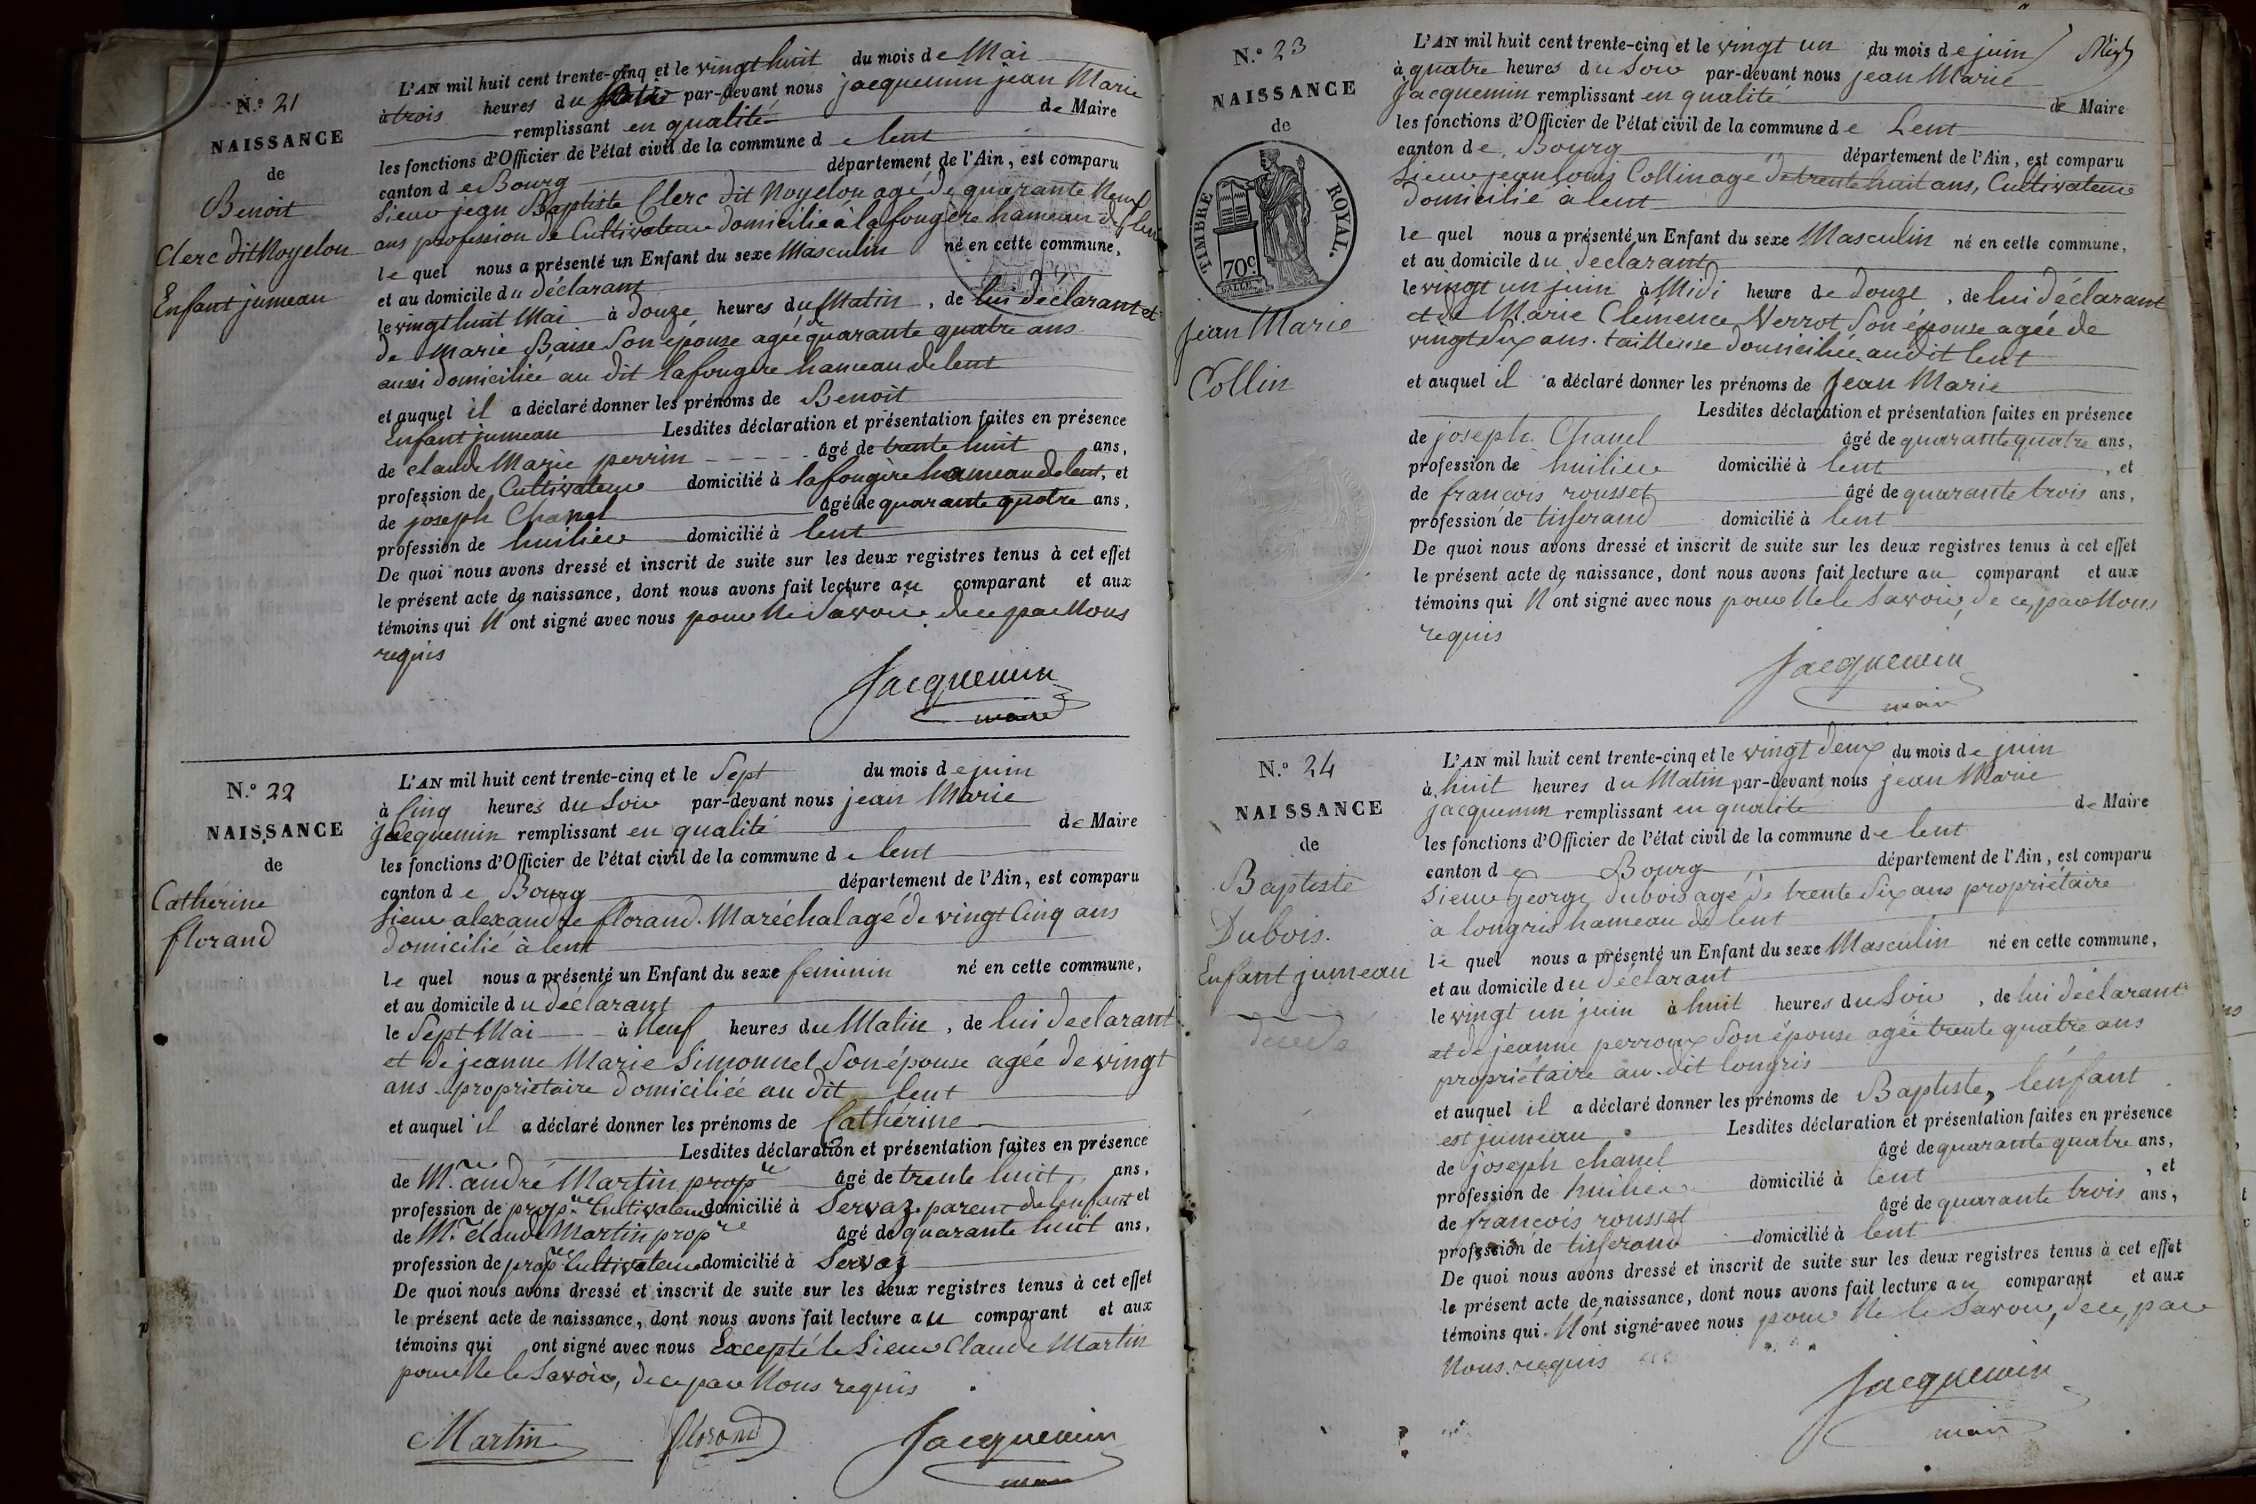 N.° 21
NAISSANCE
de
Benoit
Clerc dit Noyelon
Enfant jumeau
L'AN mil huit cent trente-cinq et le vingt huit du mois de Mai
à trois heures du par-devant nous jacquemin jean Marie
remplissant en qualité de Maire
les fonctions d'Officier de l'état civil de la commune de lent
canton de Bourg département de l'Ain, est comparu
Sieur jean Baptiste Clerc dit Noyelon agé de quarante Neuf
ans profession de Cultivateur domicilié à lafougère hameau de lent
le quel nous a présenté un Enfant du sexe Masculin né en cette commune,
et au domicile du déclarant
le vingt huit Mai à douze heures du Matin, de lui déclarant et
de Marie Baise Son épouse agée de quarante quatre ans
aussi domiciliée au dit lafougère hameau de lent
et auquel il a déclaré donner les prénoms de Benoit
Enfant jumeau Lesdites déclaration et présentation faites en présence
de claude Marie perrin âgé de trente huit ans,
profession de Cultivateur domicilié à lafougère hameau de lent, et
de joseph Chanel âgé de quarante quatre ans,
profession de huilier domicilié à lent
De quoi nous avons dressé et inscrit de suite sur les deux registres tenus à cet effet
le présent acte de naissance, dont nous avons fait lecture au comparant et aux
témoins qui N'ont signé avec nous pour Ne Savoir de ce par Nous
requis
Jacquemin
maire
N.° 22
NAISSANCE
de
Catherine
florand
L'AN mil huit cent trente-cinq et le Sept du mois de juin
à Cinq heures du Soir par-devant nous jean Marie
jacquemin remplissant en qualité de Maire
les fonctions d'Officier de l'état civil de la commune de lent
canton de Bourg département de l'Ain, est comparu
Sieur alexandre florand. Maréchal agé de vingt Cinq ans
domicilié à lent
le quel nous a présenté un Enfant du sexe feminin né en cette commune,
et au domicile du déclarant
le Sept Mai à Neuf heures du Matin, de lui declarant
et de jeanne Marie Simonnet Son épouse agée de vingt
ans propriétaire domiciliée au dit lent
et auquel il a déclaré donner les prénoms de Cathérine
Lesdites déclaration et présentation faites en présence
de Mr. andré Martin propre âgé de trente huit ans,
profession de propre Cultivateur domicilié à Servaz parent de lenfant et
de Mr. claude Martin propre âgé de quarante huit ans,
profession de propre Cultivateur domicilié à Servaz
De quoi nous avons dressé et inscrit de suite sur les deux registres tenus à cet effet
le présent acte de naissance, dont nous avons fait lecture au comparant et aux
témoins qui ont signé avec nous Excepté le Sieur Claude Martin
pour Ne le Savoir, de ce par Nous requis
Martin florand Jacquemin
maire
N.° 23
NAISSANCE
de
TIMBRE ROYAL.
70c
jean Marie
Collin
L'AN mil huit cent trente-cinq et le vingt un du mois de juin
à quatre heures du Soir par-devant nous jean Marie
jacquemin remplissant en qualité de Maire
les fonctions d'Officier de l'état civil de la commune de Lent
canton de Bourg département de l'Ain, est comparu
Sieur jean louis Collin agé de trente huit ans, Cultivateur
domicilié à lent
le quel nous a présenté un Enfant du sexe Masculin né en cette commune,
et au domicile du declarant
le vingt un juin à Midi heure de douze, de lui déclarant
et de Marie Clemence Verrot Son épouse agée de
vingt six ans. tailleuse domiciliée audit lent
et auquel il a déclaré donner les prénoms de Jean Marie
Lesdites déclaration et présentation faites en présence
de joseph Chanel âgé de quarante quatre ans,
profession de huilier domicilié à lent, et
de françois rousset âgé de quarante trois ans,
profession de tisserand domicilié à lent
De quoi nous avons dressé et inscrit de suite sur les deux registres tenus à cet effet
le présent acte de naissance, dont nous avons fait lecture au comparant et aux
témoins qui N'ont signé avec nous pour Ne le Savoir, de ce, par Nous
requis
Jacquemin
maire
N.° 24
NAISSANCE
de
Baptiste
Dubois.
Enfant jumeau
L'AN mil huit cent trente-cinq et le vingt deux du mois de juin
à huit heures du Matin par-devant nous jean Marie
jacquemin remplissant en qualité de Maire
les fonctions d'Officier de l'état civil de la commune de lent
canton de Bourg département de l'Ain, est comparu
Sieur george dubois agé de trente Six ans propriétaire
à longris hameau de lent
le quel nous a présenté un Enfant du sexe Masculin né en cette commune,
et au domicile du déclarant
le vingt un juin à huit heures du Soir, de lui déclarant
et de jeanne perroux Son épouse agée trente quatre ans
propriétaire au dit longris
et auquel il a déclaré donner les prénoms de Baptiste, lénfant
est jumeau. Lesdites déclaration et présentation faites en présence
de joseph chanel âgé de quarante quatre ans,
profession de huilier domicilié à lent, et
de françois rousset âgé de quarante trois ans,
profession de tisserand domicilié à lent
De quoi nous avons dressé et inscrit de suite sur les deux registres tenus à cet effet
le présent acte de naissance, dont nous avons fait lecture au comparant et aux
témoins qui N'ont signé avec nous pour Ne le Savoir, de ce, par
Nous requis
Jacquemin
maire